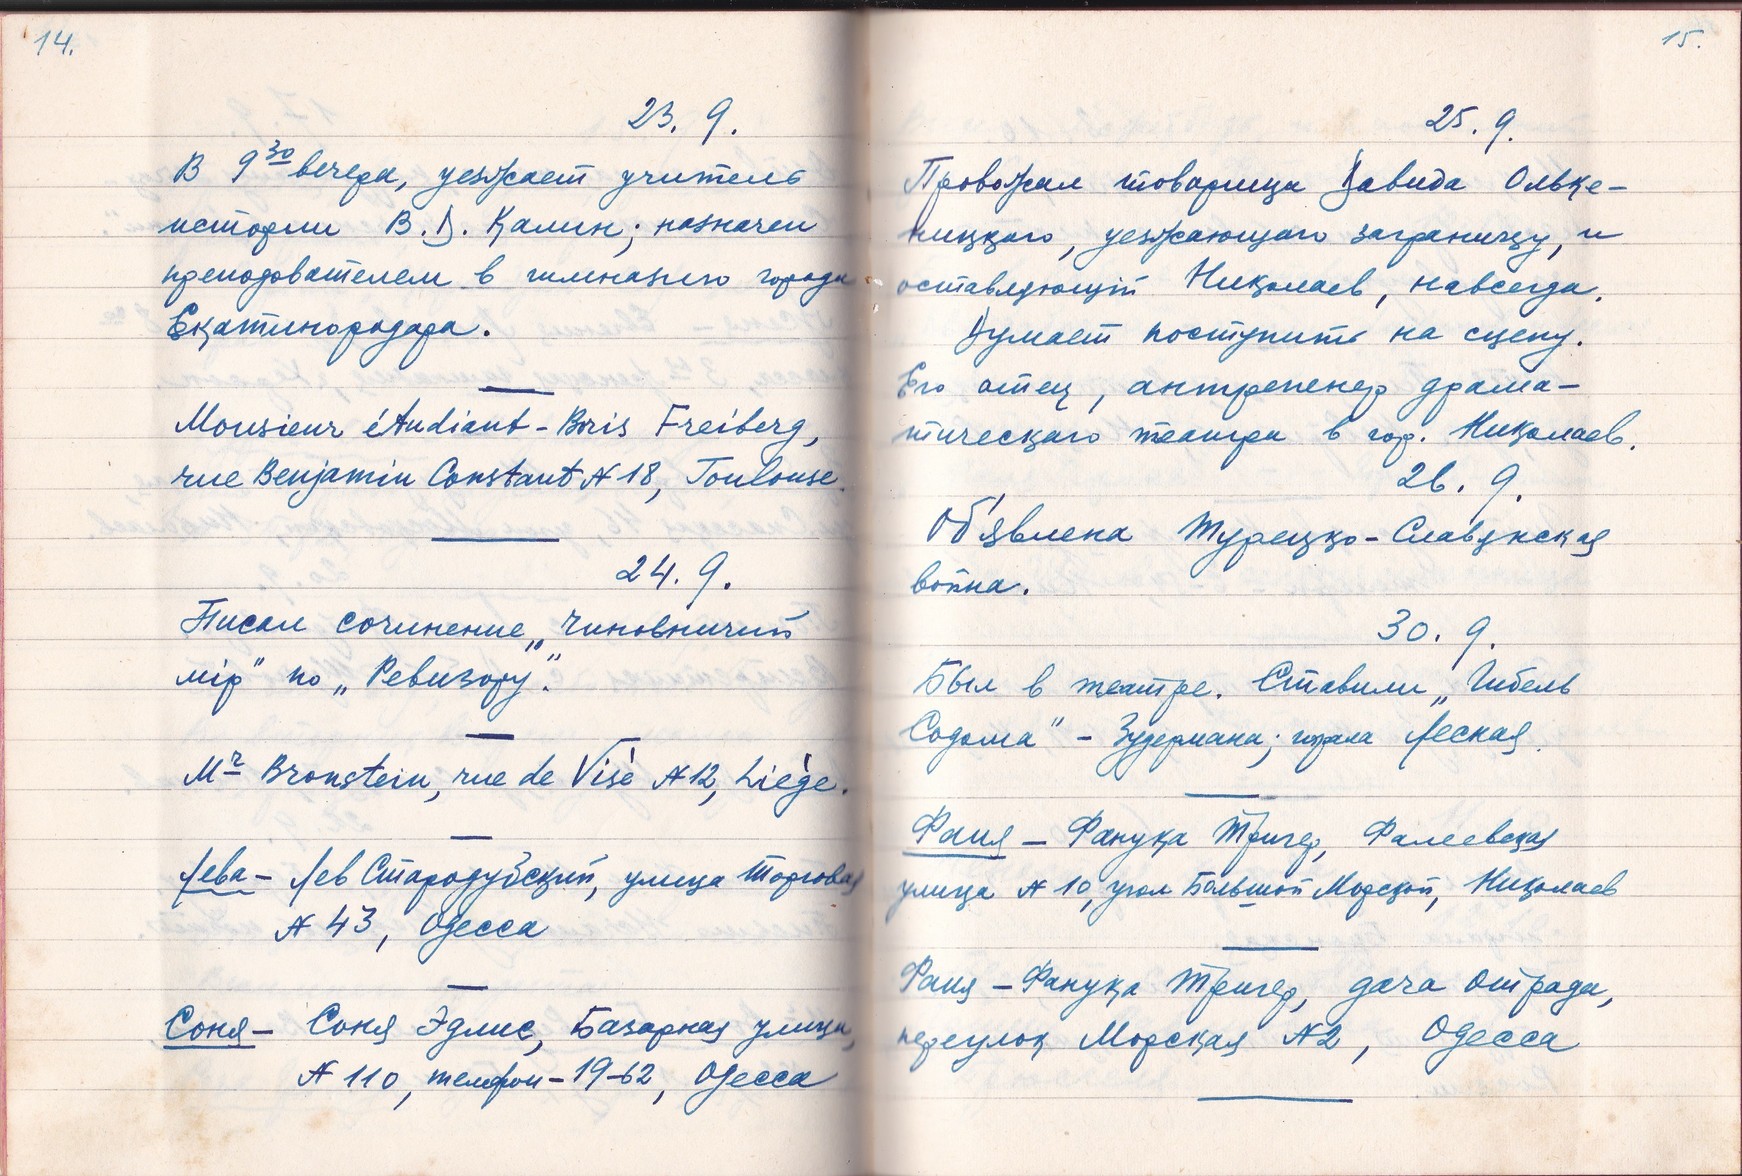 14.
23. 9.
В 9 30 вечера, уезжает учитель
истории В. Д. Калин; назначен
преподователем в гимназию города
Екатинородара.
Monsieur étudiant - Boris Freiberg,
rue Benjamin Constant № 18, Toulouse.
24. 9.
Писал сочинение „Чиновничий
мiр" по „Ревизору".
Mr Bronstein, rue de Visé № 12, Liége.
Лева - Лев Стародубский, улица Торговая
№ 43, Одесса
Соня - Соня Эдлис, Базарная улица,
№ 110, телефон - 19-62, Одесса
15.
25. 9.
Провожал товарища Давида Ольке-
ницкаго, уезжающаго заграницу, и
оставляющiй Николаев, навсегда.
Думает поступить на сцену.
Его отец, антрепенер драма-
тическаго театра в гор. Николаев.
26. 9.
Об'явлена Турецко-Славянская
война.
30. 9.
Был в театре. Ставили „Гибель
Содома" - Зудермана; играла Леская.
Фаня - Фанука Тригер, Фалеевская
улица № 10, угол Большой Морской, Николаев
Фаня - Фанука Тригер, дача Отрада,
переулок Морская № 2, Одесса